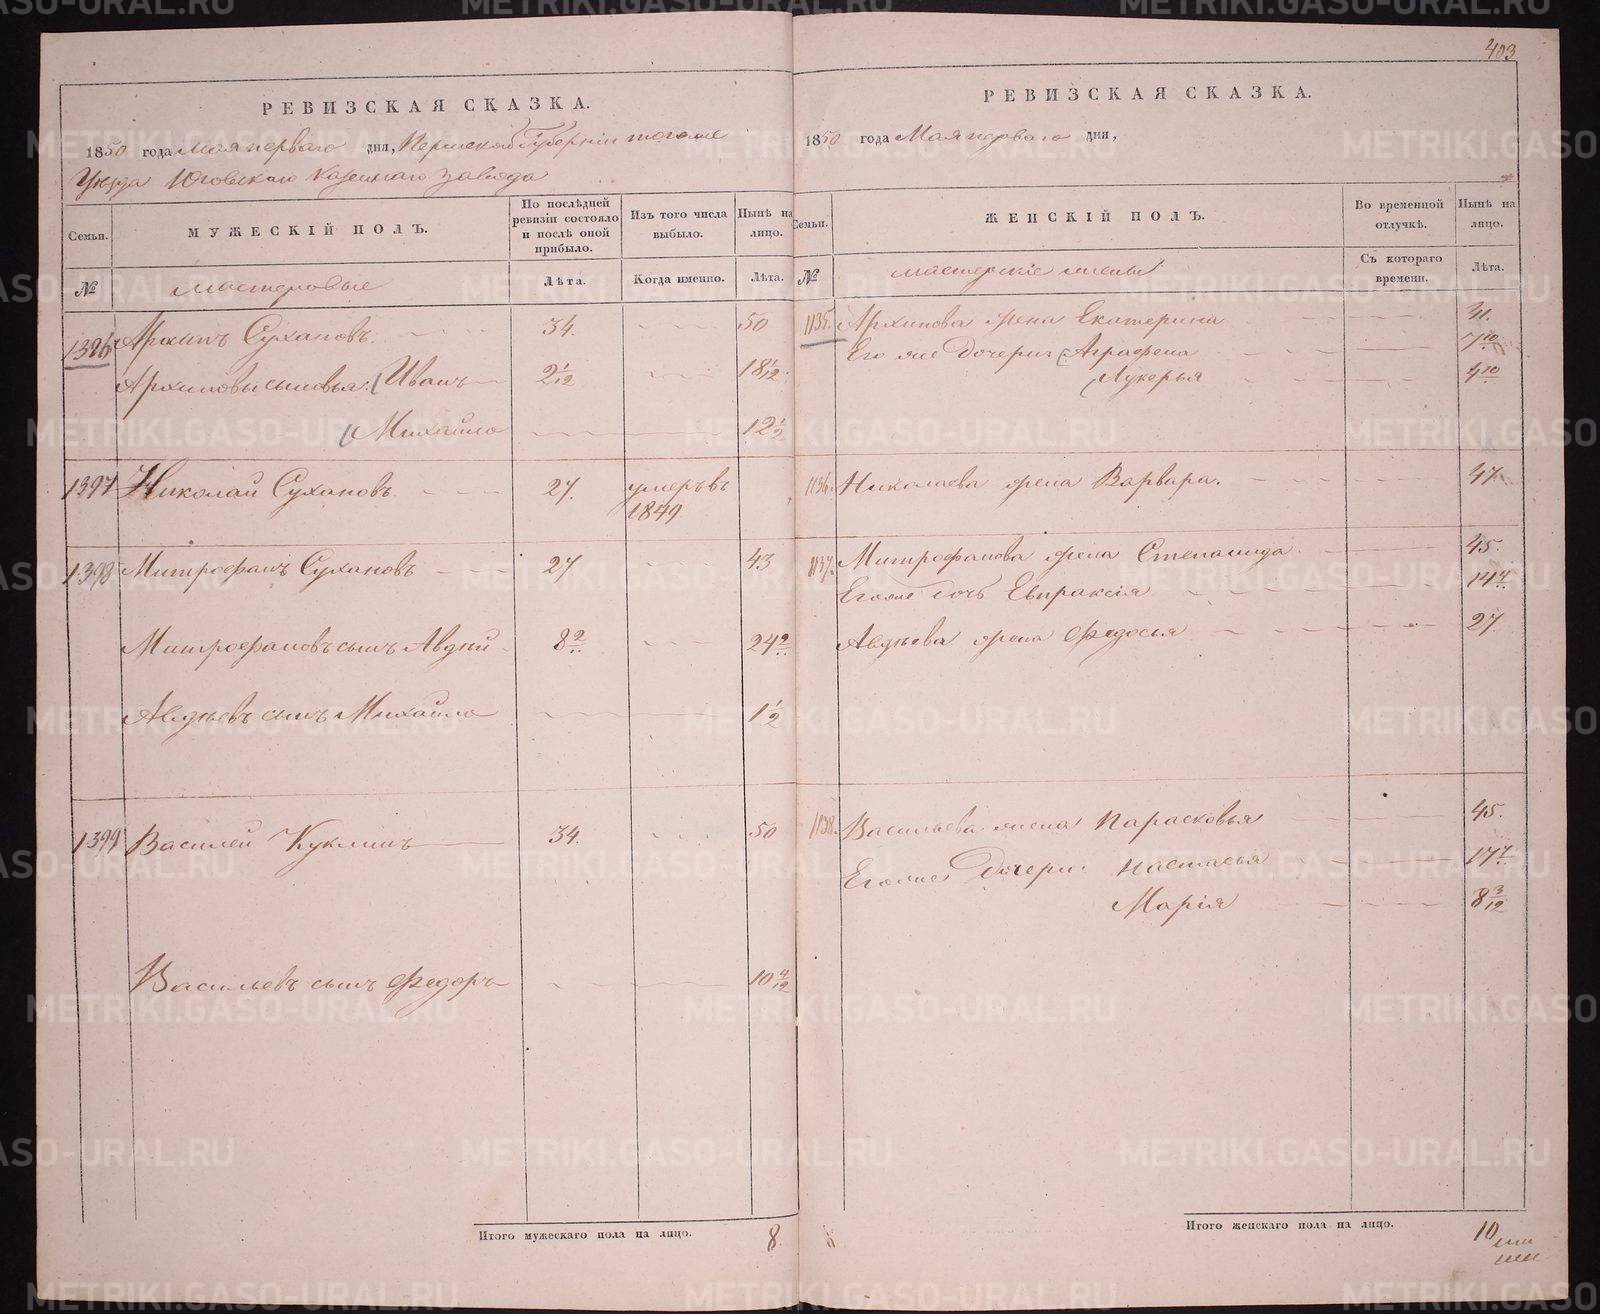 403
РЕВИЗСКАЯ СКАЗКА.
1850 года Мая перваго дня, Пермской Губернiи тогоже
Уѣзда Юговскаго казеннаго завода
Семьи. МУЖЕСКIЙ ПОЛЪ. По послѣдней ревизiи состояло и послѣ оной прибыло. Изъ того числа выбыло. Нынѣ на лицо.
№ Мастеровые Лѣта. Когда именно. Лѣта.
1396 Архипъ Сухановъ 34. 50
Архиповы сыновья: Иванъ 2 1/12 18 1/12
Михайло 12 1/2
1397 Николай Сухановъ 27. умеръ въ 1849
1398 Митрофанъ Сухановъ 27 43
Митрофановъ сынъ Авдѣй 8 2/12 24 2/12
Авдѣевъ сынъ Михайло 1 1/2
1399 Василей Куклинъ 34. 50
Васильевъ сынъ Федоръ 10 4/12
Итого мужескаго пола на лицо. 8
РЕВИЗСКАЯ СКАЗКА.
1850 года Мая перваго дня,
Семьи. ЖЕНСКIЙ ПОЛЪ. Во временной отлучкѣ. Нынѣ на лицо.
№ мастерскiе жены Съ котораго времени. Лѣта.
1135. Архипова жена Екатерина 31.
Его же Дочери: Аграфена 7 10
Лукерья 4 10
1136. Николаева жена Варвара. 47
1137. Митрофанова жена Степанида 45.
Его же дочь Евпраксiя 14 4
Авдѣева жена Федосья 27
1138. Васильева жена Парасковья 45.
Его же Дочери: Настасья 17 7
Марiя 8 3/12
Итого женскаго пола на лицо. 10
METRIKI.GASO-URAL.RU